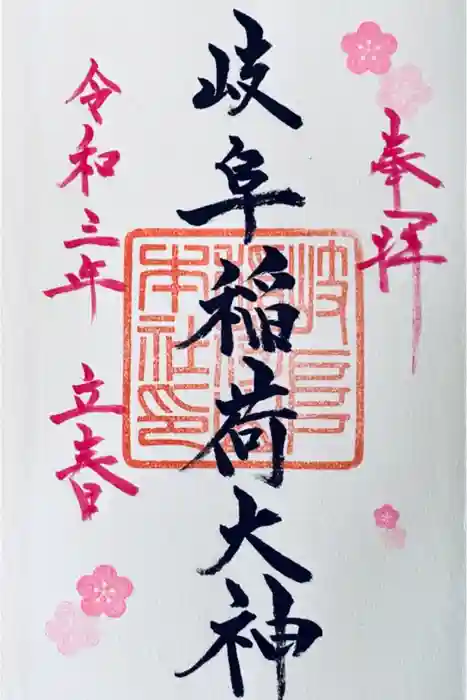 奉拝
岐阜稲荷大神
令和三年 立春